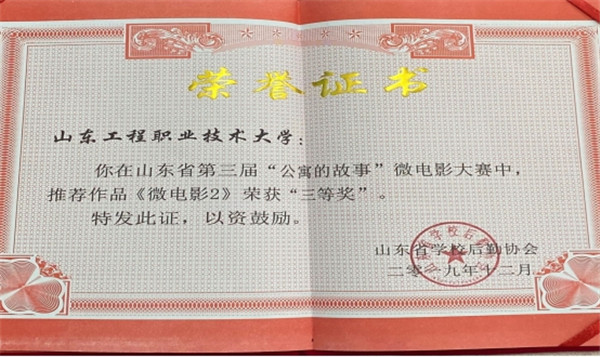 荣誉证书
山东工程职业技术大学：
你在山东省第三届“公寓的故事”微电影大赛中，
推荐作品《微电影2》荣获“三等奖”。
特发此证，以资鼓励。
山东省学校后勤协会
二〇一九年十二月